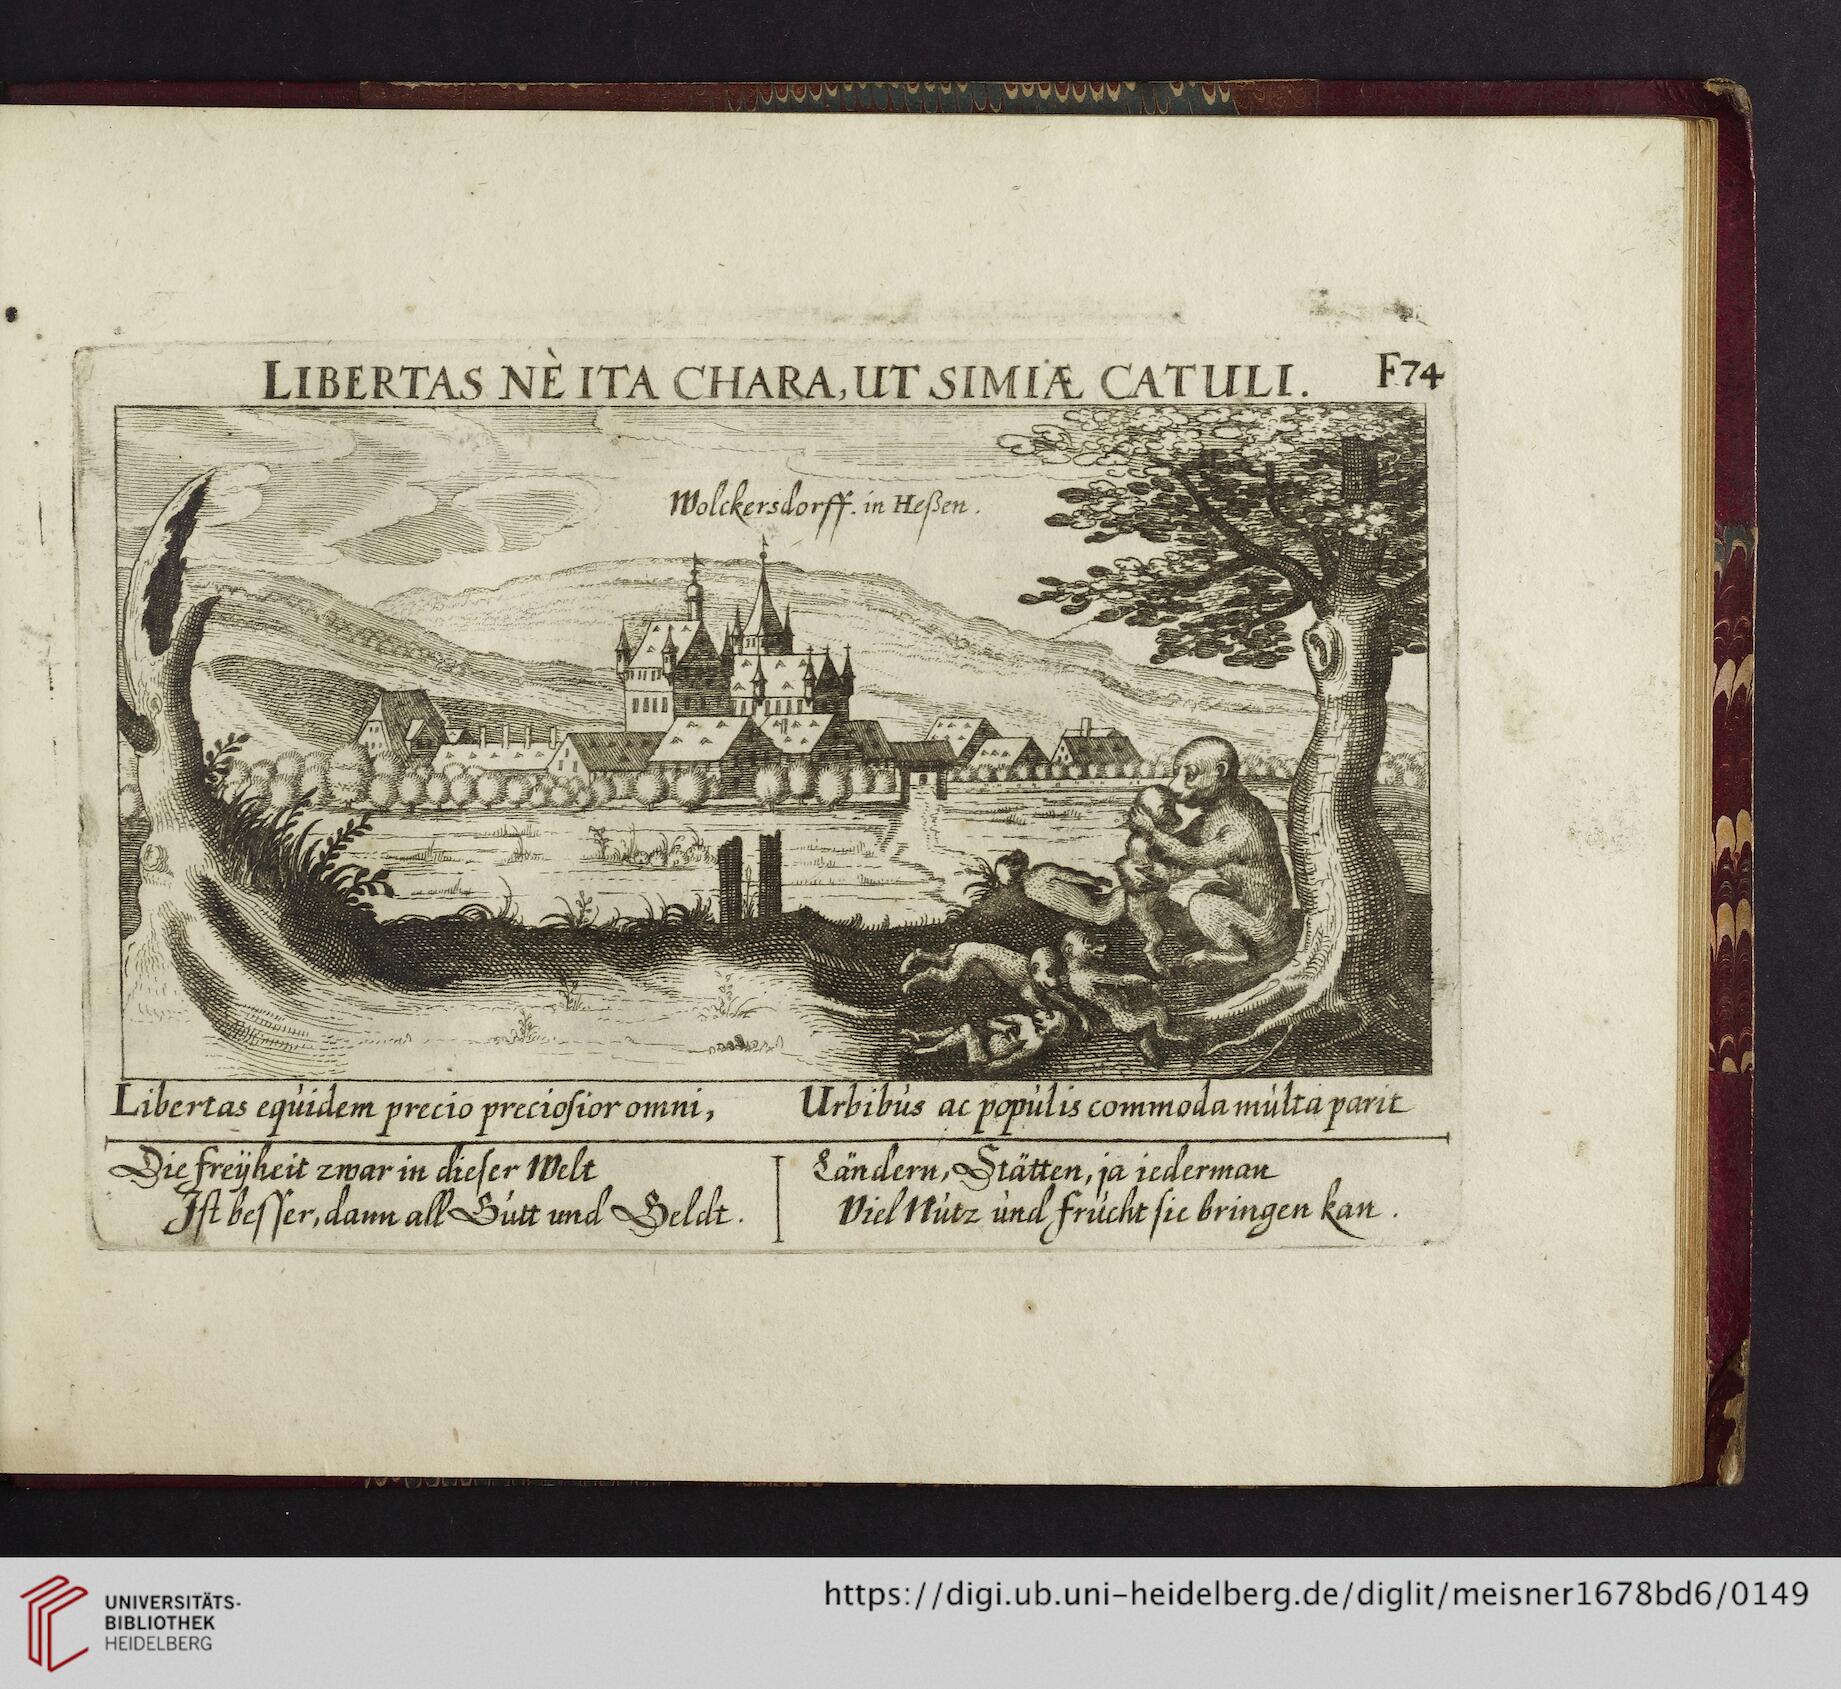 LIBERTAS NÈ ITA CHARA, UT SIMIÆ CATULI. F74
Wolckersdorff. in Heßen.
Libertas equidem precio preciosior omni, Urbibus ac populis commoda multa parit
Die freÿheit zwar in dieser Welt
Ist besser, dann all Gutt und Geldt.
Ländern, Stätten, ja iederman
Viel Nutz und frucht sie bringen kan.
UNIVERSITÄTS-
BIBLIOTHEK
HEIDELBERG
https://digi.ub.uni-heidelberg.de/diglit/meisner1678bd6/0149